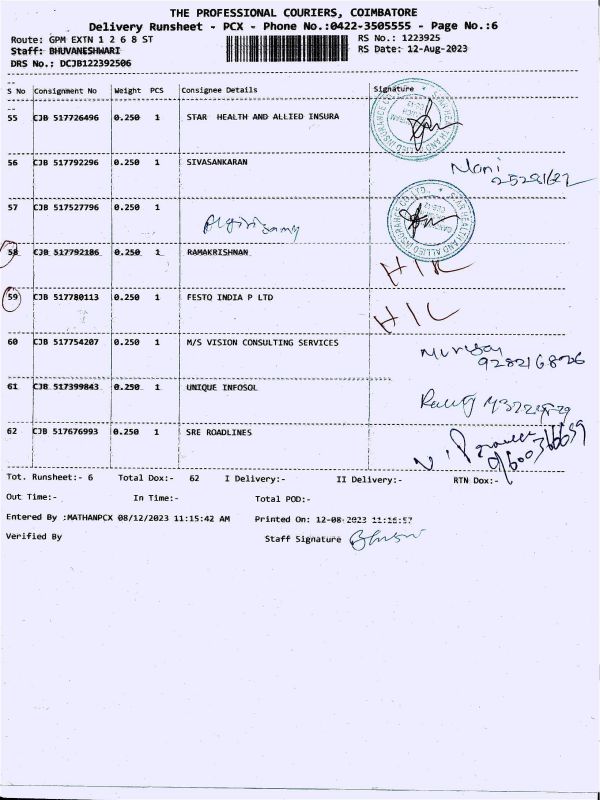 THE PROFESSIONAL COURIERS, COIMBATORE
Delivery Runsheet - PCX - Phone No.:0422-3505555 - Page No.:6
Route: GPM EXTN 1 2 6 8 ST RS No.: 1223925
Staff: BHUVANESHWARI RS Date: 12-Aug-2023
DRS No.: DCJB122392506
S No Consignment No Weight PCS Consignee Details Signature
55 CJB 517726496 0.250 1 STAR HEALTH AND ALLIED INSURA
56 CJB 517792296 0.250 1 SIVASANKARAN Mani
57 CJB 517527796 0.250 1
58 CJB 517792186 0.250 1 RAMAKRISHNAN
59 CJB 517780113 0.250 1 FESTO INDIA P LTD
60 CJB 517754207 0.250 1 M/S VISION CONSULTING SERVICES
61 CJB 517399843 0.250 1 UNIQUE INFOSOL
62 CJB 517676993 0.250 1 SRE ROADLINES
Tot. Runsheet:- 6 Total Dox:- 62 I Delivery:- II Delivery:- RTN Dox:-
Out Time:- In Time:- Total POD:-
Entered By :MATHANPCX 08/12/2023 11:15:42 AM Printed On: 12-08-2023 11:16:57
Verified By Staff Signature